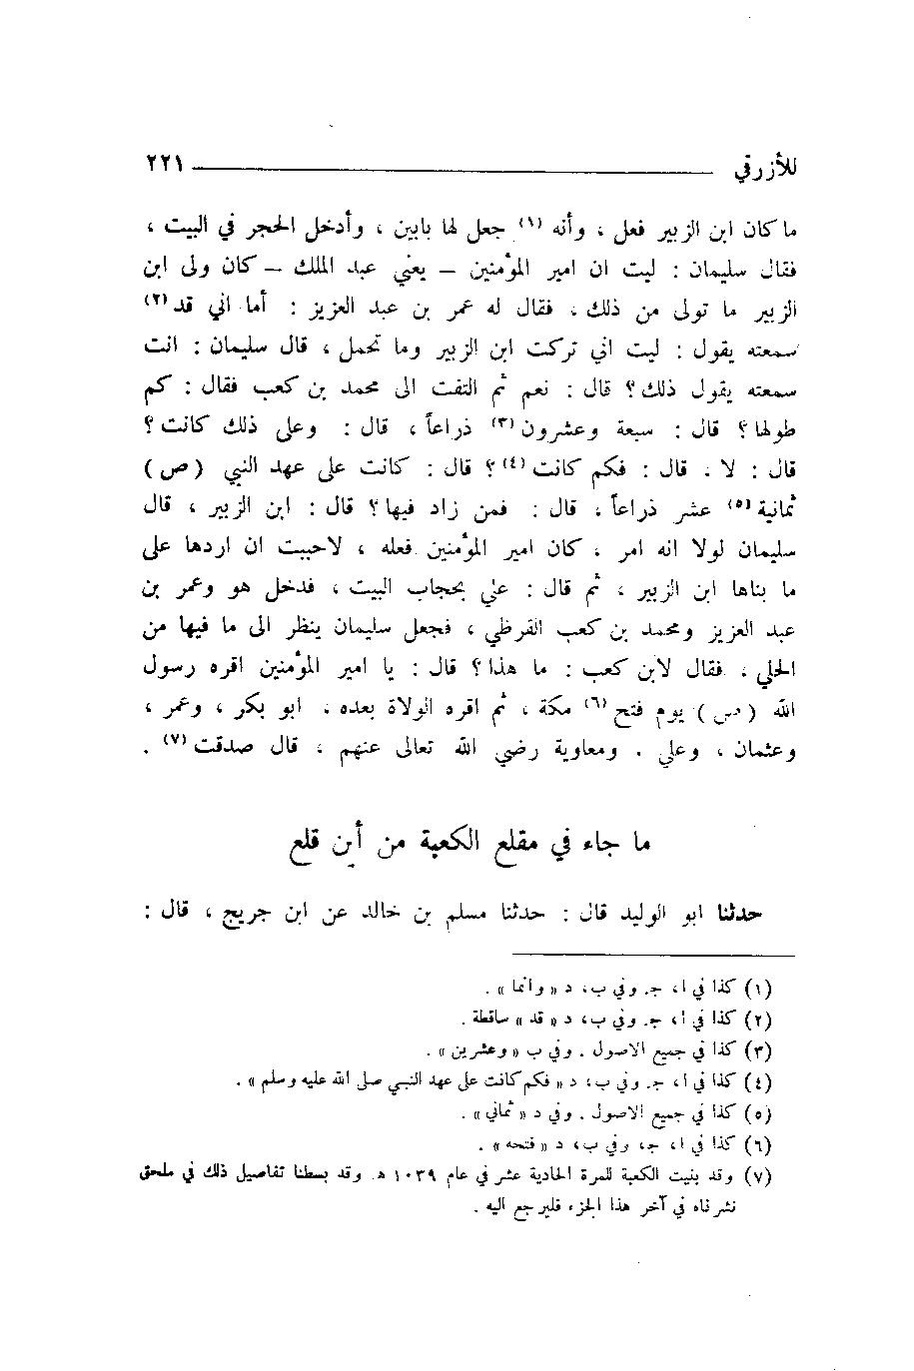 للأزرقي ٢٢١
ما كان ابن الزبير فعل ، وأنه (١) جعل لها بابين ، وأدخل الحجر في البيت ،
فقال سليمان : ليت ان امير المؤمنين – يعني عبد الملك – كان ولى ابن
الزبير ما تولى من ذلك ، فقال له عمر بن عبد العزيز : أما اني قد (٢)
سمعته يقول : ليت اني تركت ابن الزبير وما تحمل ، قال سليمان : انت
سمعته يقول ذلك ؟ قال : نعم ثم التفت الى محمد بن كعب فقال : كم
طولها ؟ قال : سبعة وعشرون (٣) ذراعاً ، قال : وعلى ذلك كانت ؟
قال : لا . قال : فكم كانت (٤) ؟ قال : كانت على عهد النبي ( ص )
ثمانية (٥) عشر ذراعاً ، قال : فمن زاد فيها ؟ قال : ابن الزبير ، قال
سليمان لولا انه امر ، كان امير المؤمنين فعله ، لاحببت ان اردها على
ما بناها ابن الزبير ، ثم قال : علي بحجاب البيت ، فدخل هو وعمر بن
عبد العزيز ومحمد بن كعب القرظي ، فجعل سليمان ينظر الى ما فيها من
الحلي ، فقال لابن كعب : ما هذا ؟ قال : يا امير المؤمنين اقره رسول
الله ( ص ) يوم فتح (٦) مكة ، ثم اقره الولاة بعده ، ابو بكر ، وعمر ،
وعثمان ، وعلي . ومعاوية رضي الله تعالى عنهم ، قال صدقت (٧) .
ما جاء في مقلع الكعبة من أين قلع
حدثنا ابو الوليد قال : حدثنا مسلم بن خالد عن ابن جريج ، قال :
(١) كذا في ا ، ج. وفي ب ، د « وانما » .
(٢) كذا في ا ، ج. وفي ب ، د « قد » ساقطة .
(٣) كذا في جميع الاصول . وفي ب « وعشرين » .
(٤) كذا في ا ، ج. وفي ب ، د « فكم كانت على عهد النبي صلى الله عليه وسلم » .
(٥) كذا في جميع الاصول . وفي د « ثماني » .
(٦) كذا في ا ، ج، وفي ب ، د « فتحه » .
(٧) وقد بنيت الكعبة للمرة الحادية عشر في عام ١٠٣٩ هـ. وقد بسطنا تفاصيل ذلك في ملحق
نشرناه في آخر هذا الجزء فليرجع اليه .